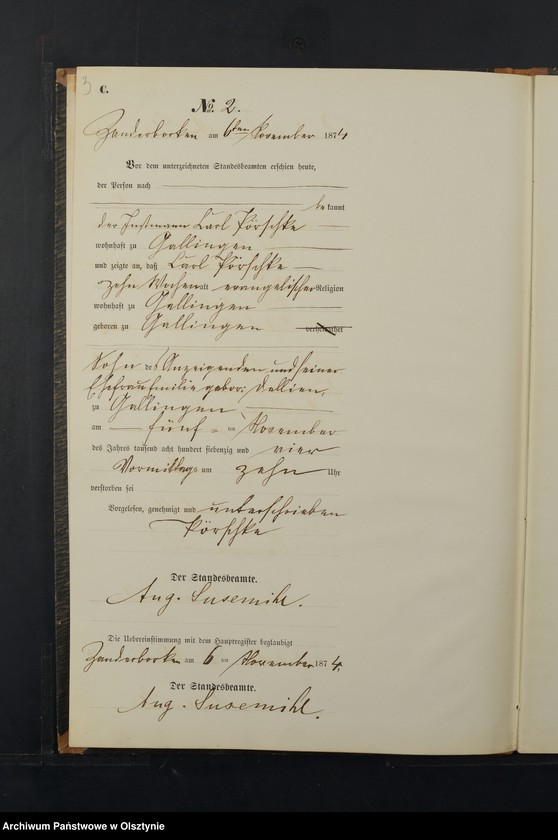 3 C.
No. 2.
Zanderborken am 6ten November 1874
Vor dem unterzeichneten Standesbeamten erschien heute,
der Person nach
bekannt
der Instmann Carl Pörschke
wohnhaft zu Gallingen
und zeigte an, daß Carl Pörschke
zehn Wochen alt evangelischer Religion
wohnhaft zu Gallingen
geboren zu Gallingen verheirathet
Sohn des Anzeigenden und seiner
Ehefrau Emilie gebor: Dellien,
zu Gallingen
am fünf ten November
des Jahres tausend acht hundert siebenzig und vier
Vormittags um zehn Uhr
verstorben sei
Vorgelesen, genehmigt und unterschrieben
Pörschke
Der Standesbeamte.
Aug. Susemihl.
Die Uebereinstimmung mit dem Hauptregister beglaubigt
Zanderborken am 6 ten November 1874.
Der Standesbeamte.
Aug. Susemihl.
Archiwum Państwowe w Olsztynie